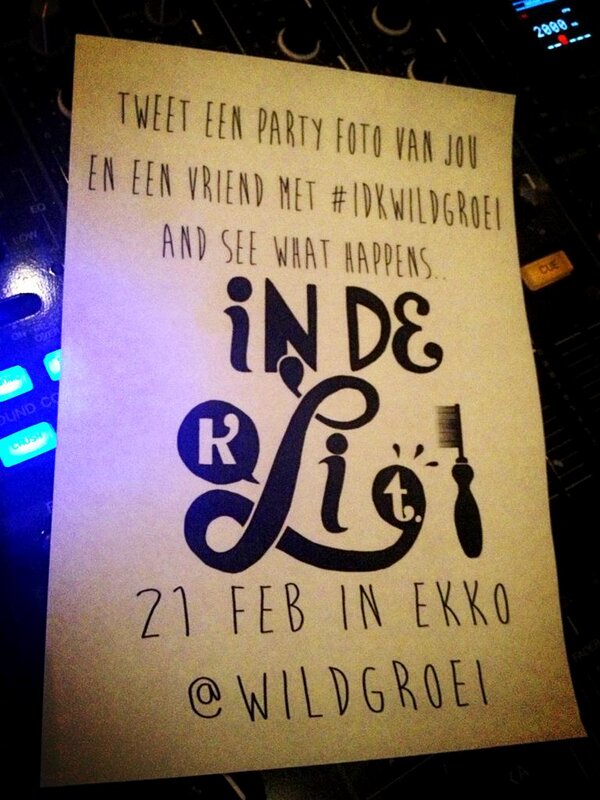 TWEET EEN PARTY FOTO VAN JOU
EN EEN VRIEND MET #IDKWILDGROEI
AND SEE WHAT HAPPENS..
iN DE
KLit.
21 FEB IN EKKO
@WILDGROEI
2000
CUE
EQ
LOW
CRUSH